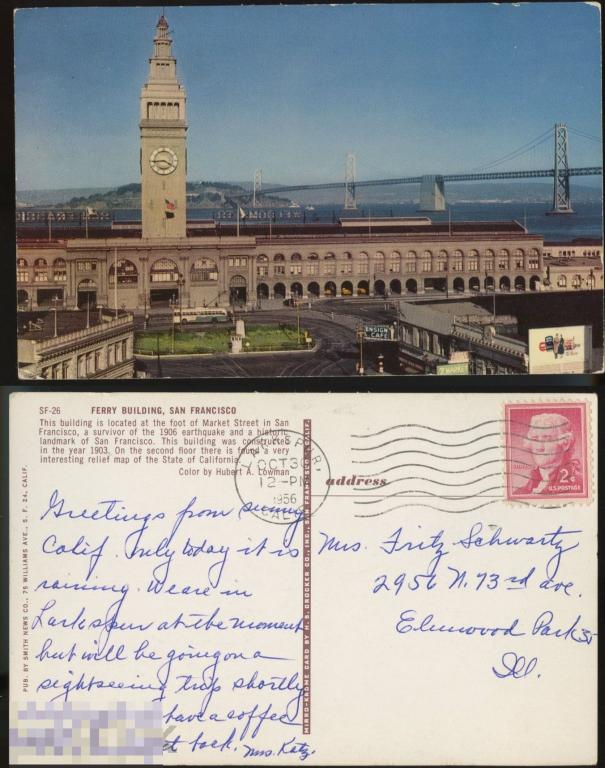 ENSIGN
CAFE
SF-26 FERRY BUILDING, SAN FRANCISCO
This building is located at the foot of Market Street in San
Francisco, a survivor of the 1906 earthquake and a historic
landmark of San Francisco. This building was constructed
in the year 1903. On the second floor there is found a very
interesting relief map of the State of California.
Color by Hubert A. Lowman
OCT 3
12-PM
1956
CALIF
address
2¢
U.S. POSTAGE
Greetings from sunny
Calif. Only today it is
raining. We are in
Larkspur at the moment
but will be going on a
sightseeing trip shortly
have a coffee
back. Mrs. Katz.
Mrs. Fritz Schwartz
2956 N. 73rd ave.
Elmwood Park 35
Ill.
PUB. BY SMITH NEWS CO., 75 WILLIAMS AVE., S. F. 24, CALIF.
MIRRO-KROME CARD BY H.S. CROCKER CO., INC., SAN FRANCISCO, CALIF.